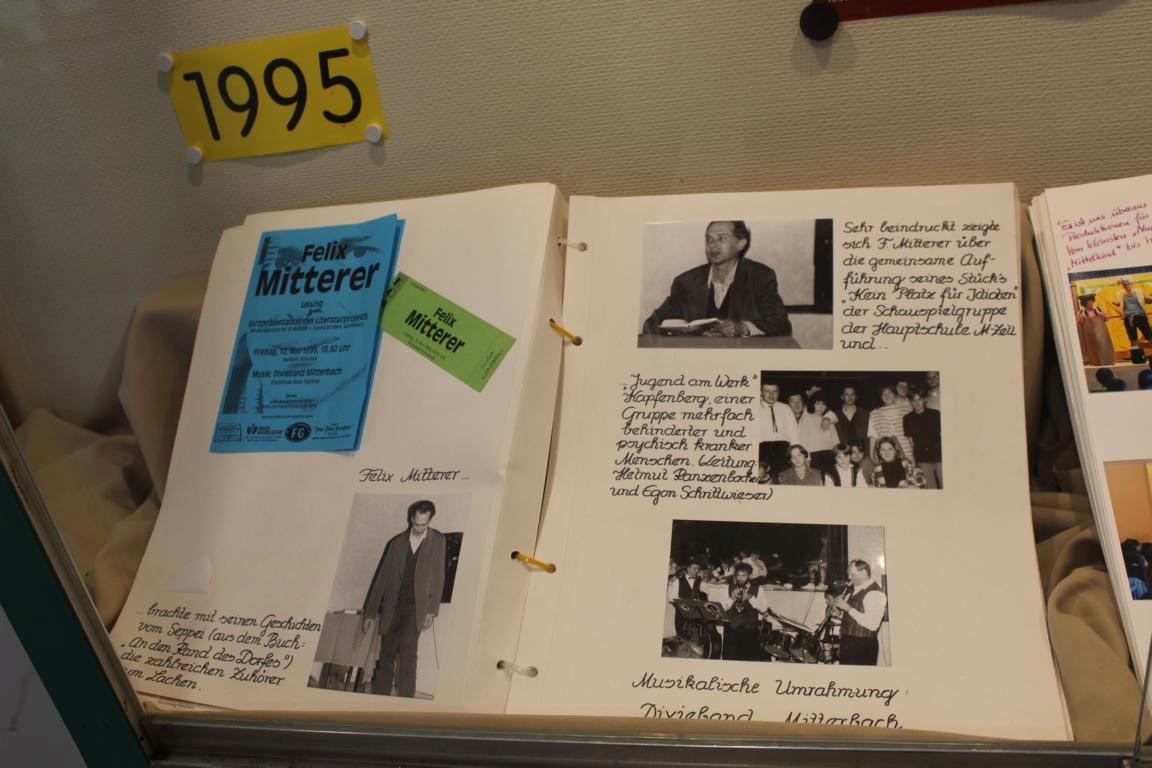 1995
Felix
Mitterer
Lesung
Kurzpräsentation des Literaturprojekts
Freitag, 12. Mai 1995, 19.30 Uhr
Musik: Dixieband Mitterbach
FG
Felix
Mitterer
Felix Mitterer...
... brachte mit seinen Geschichten
vom Seppei (aus dem Buch:
"An den Rand des Dorfes")
die zahlreichen Zuhörer
um Lachen.
Sehr beindruckt zeigte
sich F. Mitterer über
die gemeinsame Auf-
führung seines Stücks
"Kein Platz für Idioten"
der Schauspielgruppe
der Hauptschule M-Zell
und...
... "Jugend am Werk"
Kapfenberg, einer
Gruppe mehrfach
behinderter und
psychisch kranker
Menschen. (Leitung:
Helmut Panzenböck
und Egon Schrittwieser)
Musikalische Umrahmung:
Dixieband Mitterbach
"Es ist uns überaus
Produktionen für
vom kleinsten
"Mittelkind" bis